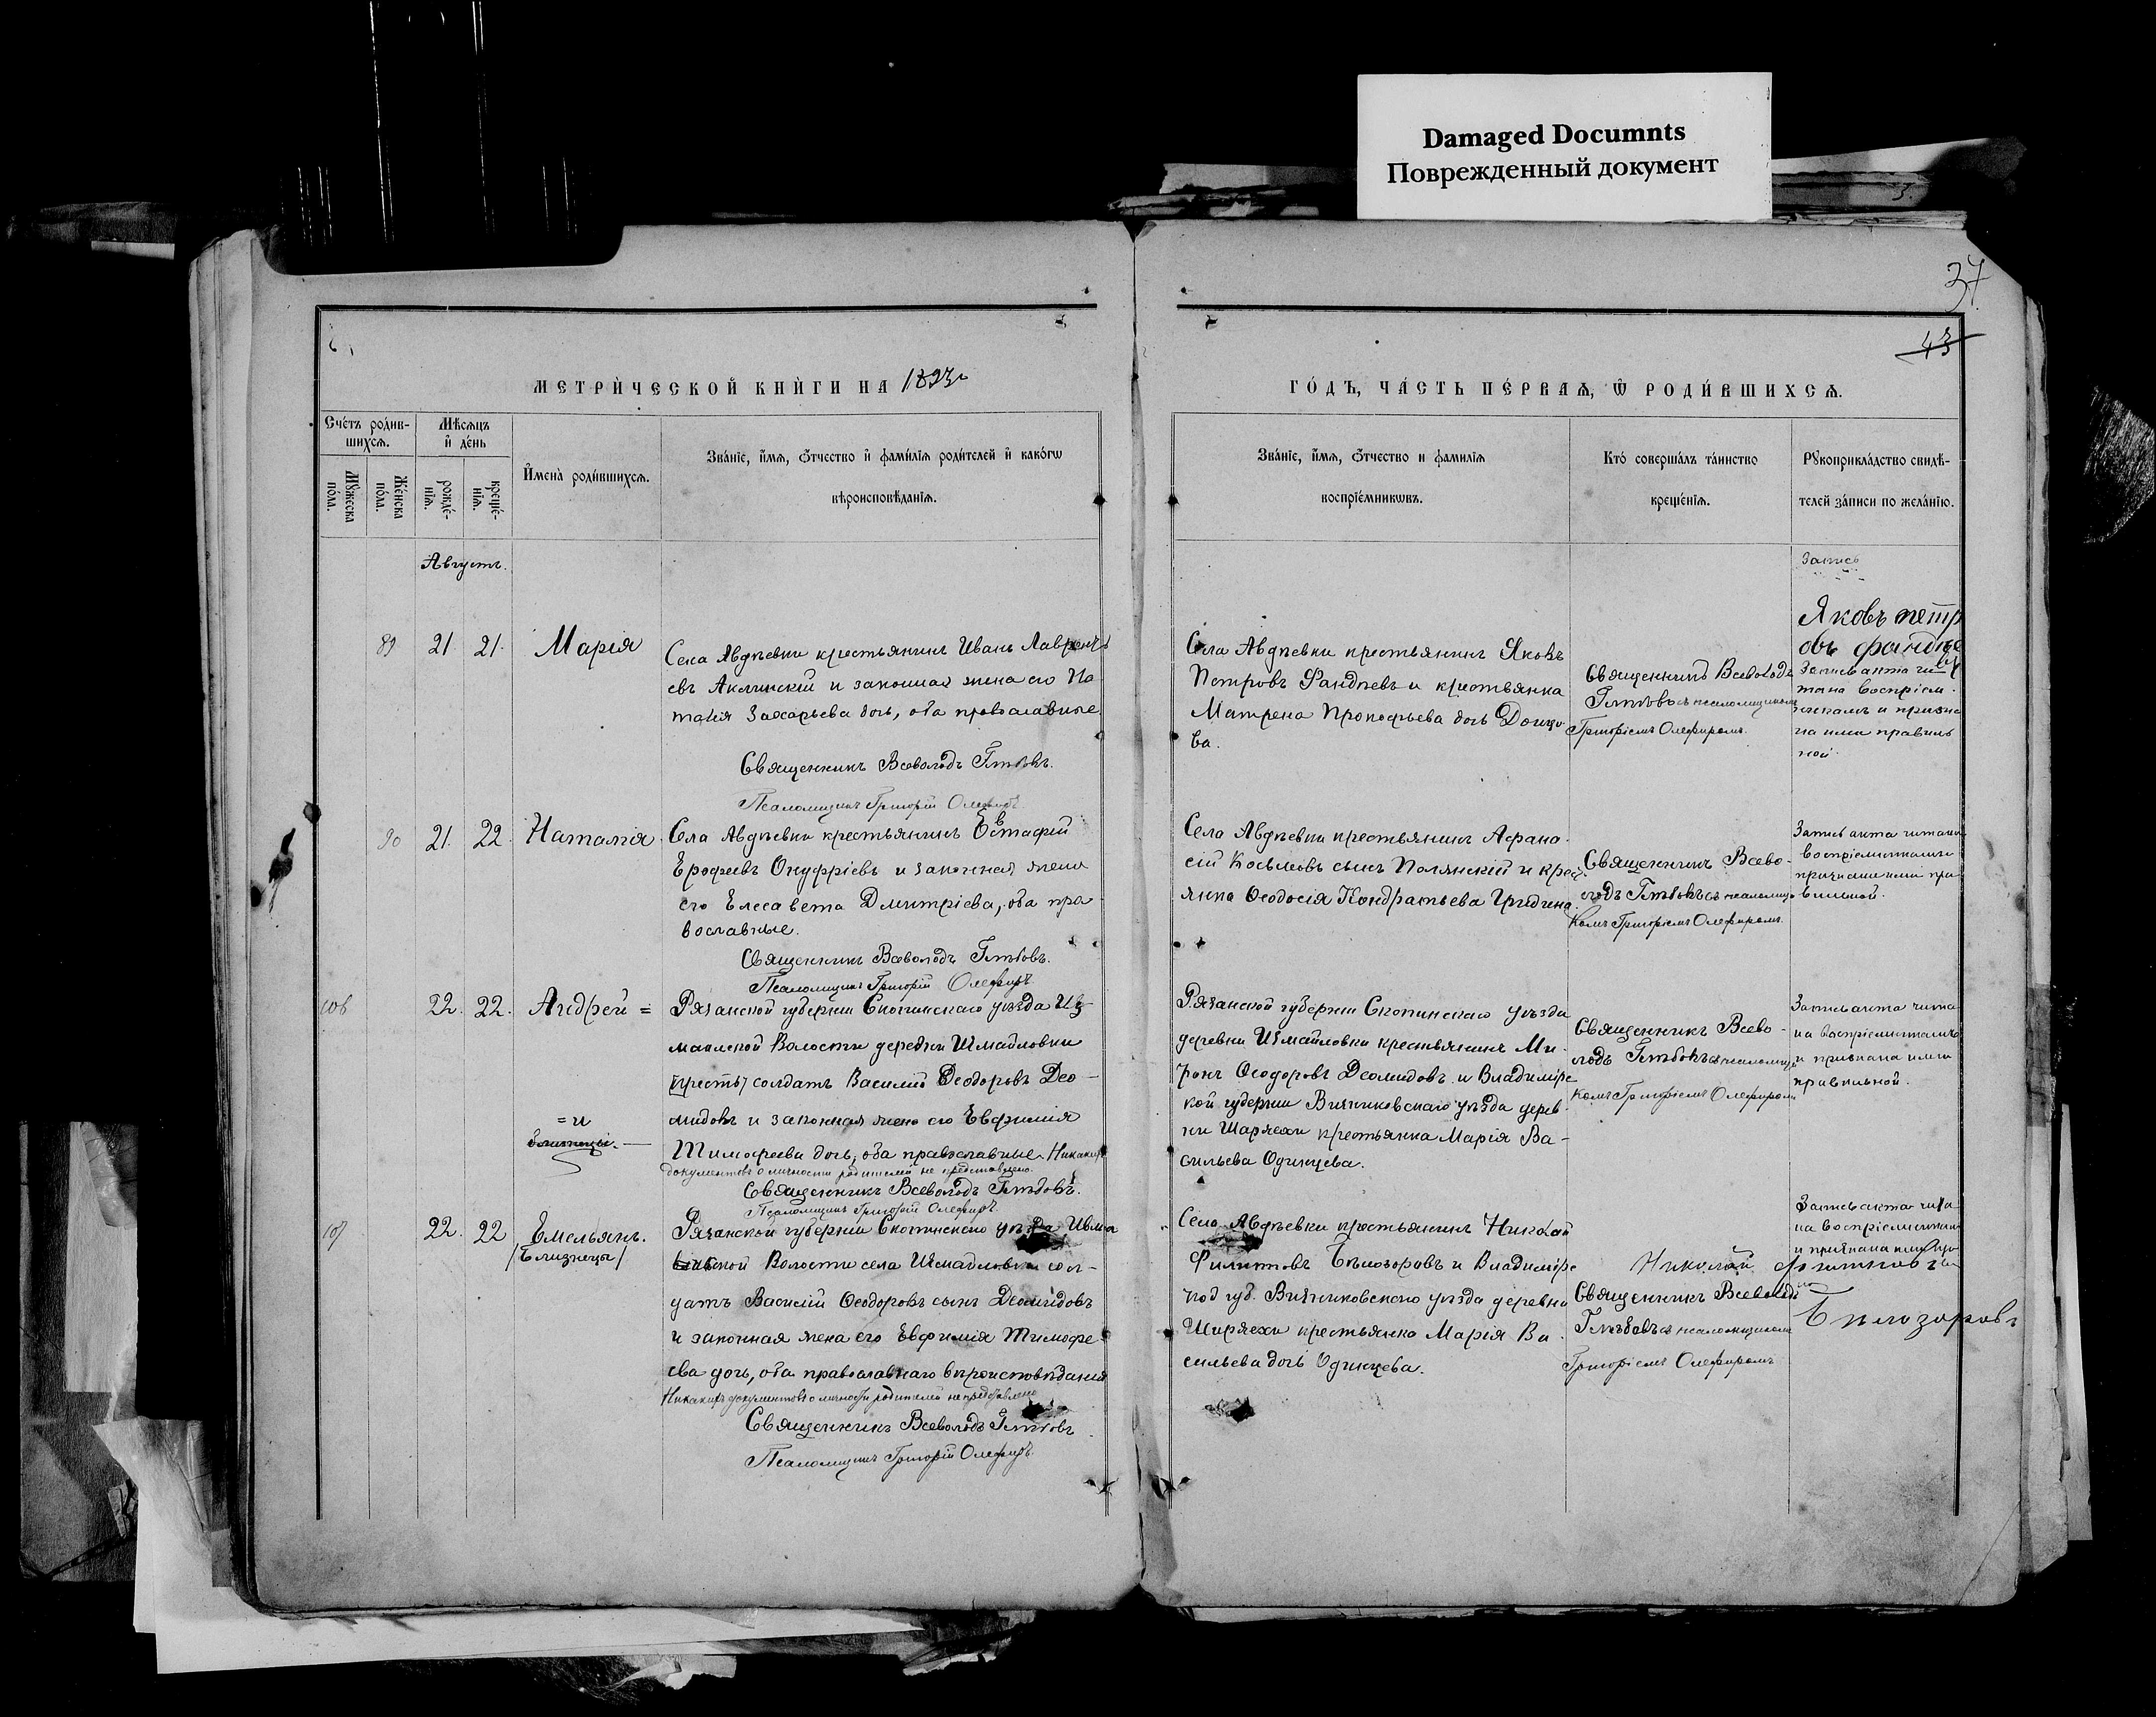 Damaged Documnts
Поврежденный документ
37
43
МЕТРИ́ЧЕСКОЙ КНИ́ГИ НА 1893
ГО́ДЪ, ЧА́СТЬ ПЕ́РВАѦ, Ѿ РОДИ́ВШИХСѦ.
Сче́тъ роди́в-
шихсѧ.
Мꙋ́жеска
по́ла.
Же́нска
по́ла.
Мѣ́сѧцъ
и҆ де́нь
рожде́-
нїѧ.
креще́-
нїѧ.
И҆мена̀ роди́вшихсѧ.
Зва́нїе, и҆́мѧ, ѻ҆́тчество и҆ фами́лїѧ роди́телей и҆ како́гѡ
вѣроисповѣ́данїѧ.
Зва́нїе, и҆́мѧ, ѻ҆́тчество и фами́лїѧ
воспрїе́мникѡвъ.
Кто́ соверша́лъ та́инство
креще́нїѧ.
Рꙋкоприкла́дство свидѣ́-
телей за́писи по жела́нїю.
Августъ.
Запись
89 21. 21. Марія
Села Авдѣевки крестьянинъ Иванъ Лаврентьевъ Аклинскій и законная жена его
Захарьева дочь, оба православные.
Священникъ Всеволодъ Глѣбовъ.
Псаломщикъ Григорій Олефиръ.
Села Авдѣевки крестьянинъ Яковъ
Петровъ Фандѣевъ и крестьянка
Матрена Прокофьева дочь Донцо-
ва.
Священникъ Всеволодъ
Глѣбовъ съ псаломщикомъ
Григоріемъ Олефиромъ.
Яковъ петр
овъ фандѣе
въ
Запись акта чи-
тана воспріем-
никамъ и призна-
на ими правиль
ной.
90 21. 22. Наталія.
Села Авдѣевки крестьянинъ Евстафій
Ерофеевъ Онуфріевъ и законная жена
его Елисавета Дмитріева, оба пра-
вославные.
Священникъ Всеволодъ Глѣбовъ.
Псаломщикъ Григорій Олефиръ
Села Авдѣевки крестьянинъ Афана-
сій Косьмовъ сынъ Полянскій и крес-
янка Ѳеодосія Кондратьева Гридина.
Священникъ Всево-
лодъ Глѣбовъ съ псаломщи
комъ Григоріемъ Олефиромъ.
Запись акта читана
воспріемникамъ
признана ими пра
вильной.
106 22. 22. Андрей =
= и
Близнецы.
Рязанской губерніи Скопинскаго уѣзда Из-
маиловской Волости деревни Измайловки
солдатъ Василій Ѳеодоровъ Део-
мидовъ и законная жена его Евфимія
Тимофеева дочь, оба православные. Никакихъ
документовъ о личности родителей не представлено.
Священникъ Всеволодъ Глѣбовъ.
Псаломщикъ Григорій Олефиръ.
Рязанской губерніи Скопинскаго уѣзда
деревни Измайловки крестьянинъ Ми-
ронъ Ѳеодоровъ Деомидовъ и Владимірс
кой губерніи Вязниковскаго уѣзда дерев-
ни Ширяехи крестьянка Марія Ва-
сильева Одинцева.
Священникъ Всево-
лодъ Глѣбовъ съ псаломщи
комъ Григоріемъ Олефиромъ
Запись акта чита
на воспріемникамъ
и признана ими
правильной.
107 22. 22 Емельянъ.
/Близнецы/
Рязанской губерніи Скопинскаго уѣзда Изма
Волости села Измайловки сол-
датъ Василій Ѳеодоровъ сынъ Деомидовъ
и законная жена его Евфимія Тимофе-
ева дочь, оба православнаго вѣроисповѣданія
Никакихъ документовъ о личности родителей не представлено
Священникъ Всеволодъ Глѣбовъ
Псаломщикъ Григорій Олефиръ.
Села Авдѣевки крестьянинъ Николай
Филиповъ Бѣлозоровъ и Владимірс
кой губ. Вязниковскаго уѣзда деревни
Ширяехи крестьянка Марія Ва-
сильева дочь Одинцева.
Священникъ Всеволодъ
Глѣбовъ съ псаломщикомъ
Григоріемъ Олефиромъ
Запись акта чита
на воспріемникамъ
и признана ими
Николай
Билозоровъ